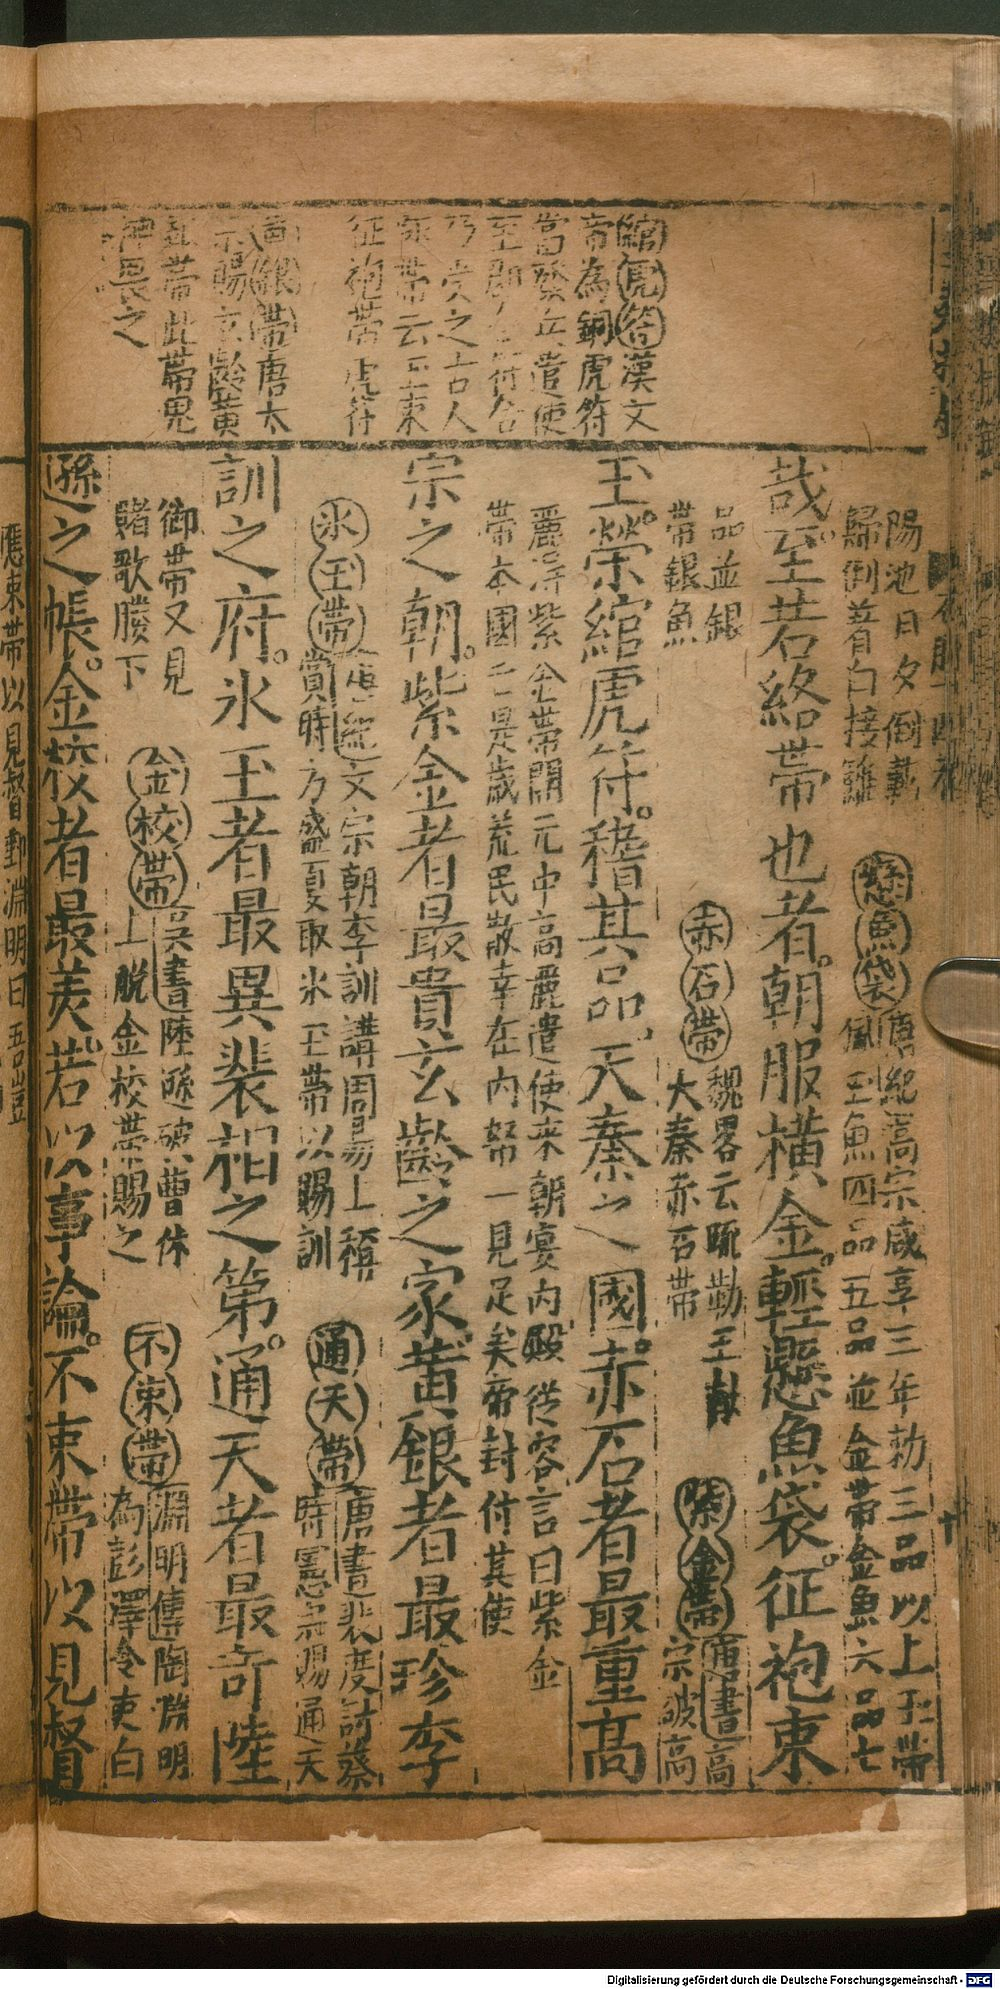 綰虎符漢文
帝為銅虎符
當發兵遣使
至郡合符合
乃受之古人
佩帶云玉束
征袍帶虎符
黃銀帶唐太
宗賜玄齡黃
銀帶此帶鬼
神畏之
陽池日夕倒載
歸倒著白接䍦
懸魚袋唐紀高宗咸亨三年勑三品以上玉帶
佩玉魚四品五品並金帶金魚六品七
哉至若絡帶也者朝服橫金輕懸魚袋征袍束
品並銀
帶銀魚
赤石帶魏畧云疏勒王献
大秦赤石帶
紫金帶唐書高
宗破高
玉榮綰虎符稽其品天秦之國赤石者最重高
麗得紫金帶開元中高麗遣使來朝宴內殿從容言曰紫金
帶本國之是歲荒民散幸在內帑一見足矣帝封付其使
宗之朝紫金者最貴玄齡之家黃銀者最珍李
氷玉帶唐紀文宗朝李訓講周易上稱
賞時方盛夏取氷玉帶以賜訓
通天帶唐書裴度討蔡
時憲宗賜通天
訓之府氷玉者最異裴相之第通天者最奇陸
御帶又見
賭歌勝下
金校帶吳書陸遜破曹休
上脫金校帶賜之
不束帶淵明傳陶淵明
為彭澤令吏白
遜之帳金校者最美若以事論不束帶以見督
應束帶以見督郵淵明曰吾豈
Digitalisierung gefördert durch die Deutsche Forschungsgemeinschaft - DFG